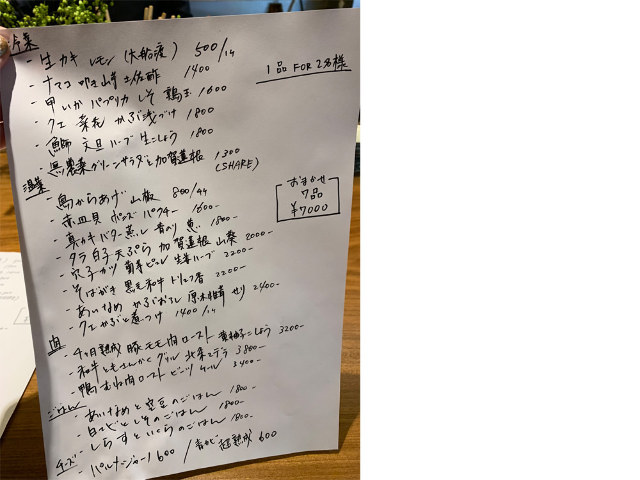 冷菜
- 生カキ レモン (大船渡) 500/1ヶ
- ナマコ 叩き山芋 土佐酢 1400
- 甲いか パプリカ しそ 鶏玉 1600
- クエ 菜花 かぶ浅づけ 1800
- 魚師 文旦 ハーブ 生こしょう 1800
- 無農薬グリーンサラダと加賀蓮根 1300
(SHARE)
1品 FOR 2名様
温菜
- 鳥からあげ 山椒 800/4ヶ
- 赤皿貝 ポンズ パクチー 1600-
- 真カキ バター蒸し 青のり 葱 1800-
- タラ白子 天ぷら 加賀蓮根 山葵 2000-
- 穴子カツ 菊芋ピュレ 生ハーブ 2200-
- そばがき 黒毛和牛 トリュフ香 2200-
- あいなめ かぶおろし 原木椎茸 せり 2400-
- クエ かぶと煮つけ 1400/1ヶ
おまかせ
7品
¥7000
肉
- 4ヶ月熟成 豚モモ肉ロースト 黄柚子こしょう 3200-
- 和牛ともさんかくグリル 北条ミデラ 3800-
- 鴨むね肉ロースト ビーツ ケール 3400-
ごはん
- あいなめと空豆のごはん 1800-
- 白エビとしそのごはん 1800-
- しらすといくらのごはん 1800-
チーズ
- パルメジャーノ 600 / 青カビ 超熟成 600